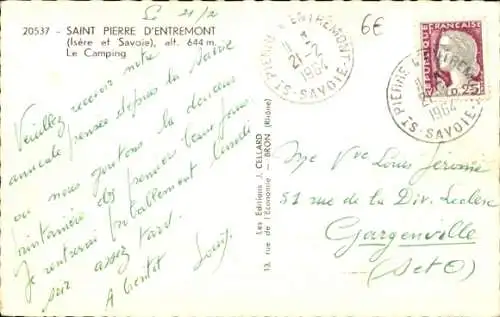 Le 21/2
20537 - SAINT PIERRE D'ENTREMONT
(Isère et Savoie), alt. 644 m.
Le Camping
6€
Veuillez recevoir notre
amicale pensée depuis la Savoie
où nous goûtons la douceur
printanière des premiers beaux jours
Je rentrerai probablement lundi
soir assez tard.
A bientôt Louis
Les Editions J. CELLARD
13, rue de l'Economie - BRON (Rhône)
ST PIERRE D'ENTREMONT
21-2
1964
SAVOIE
REPUBLIQUE FRANÇAISE
0,25
ST PIERRE D'ENTREMONT
1964
SAVOIE
Me Vve Louis Jérôme
51 rue de la Div. Leclerc
Gargenville
(S et O)